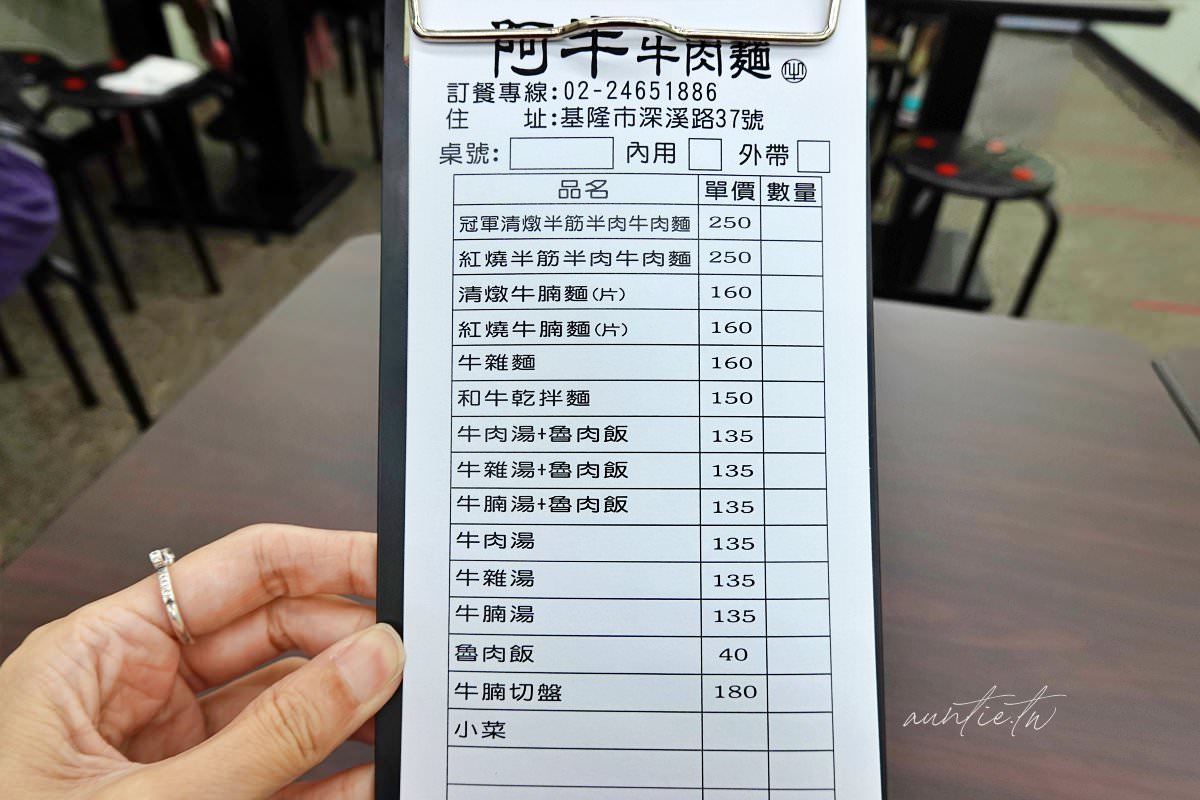 阿牛牛肉麵
訂餐專線:02-24651886
住　　址:基隆市深溪路37號
桌號: 內用 外帶
品名 單價 數量
冠軍清燉半筋半肉牛肉麵 250
紅燒半筋半肉牛肉麵 250
清燉牛腩麵(片) 160
紅燒牛腩麵(片) 160
牛雜麵 160
和牛乾拌麵 150
牛肉湯+魯肉飯 135
牛雜湯+魯肉飯 135
牛腩湯+魯肉飯 135
牛肉湯 135
牛雜湯 135
牛腩湯 135
魯肉飯 40
牛腩切盤 180
小菜
auntie.tw